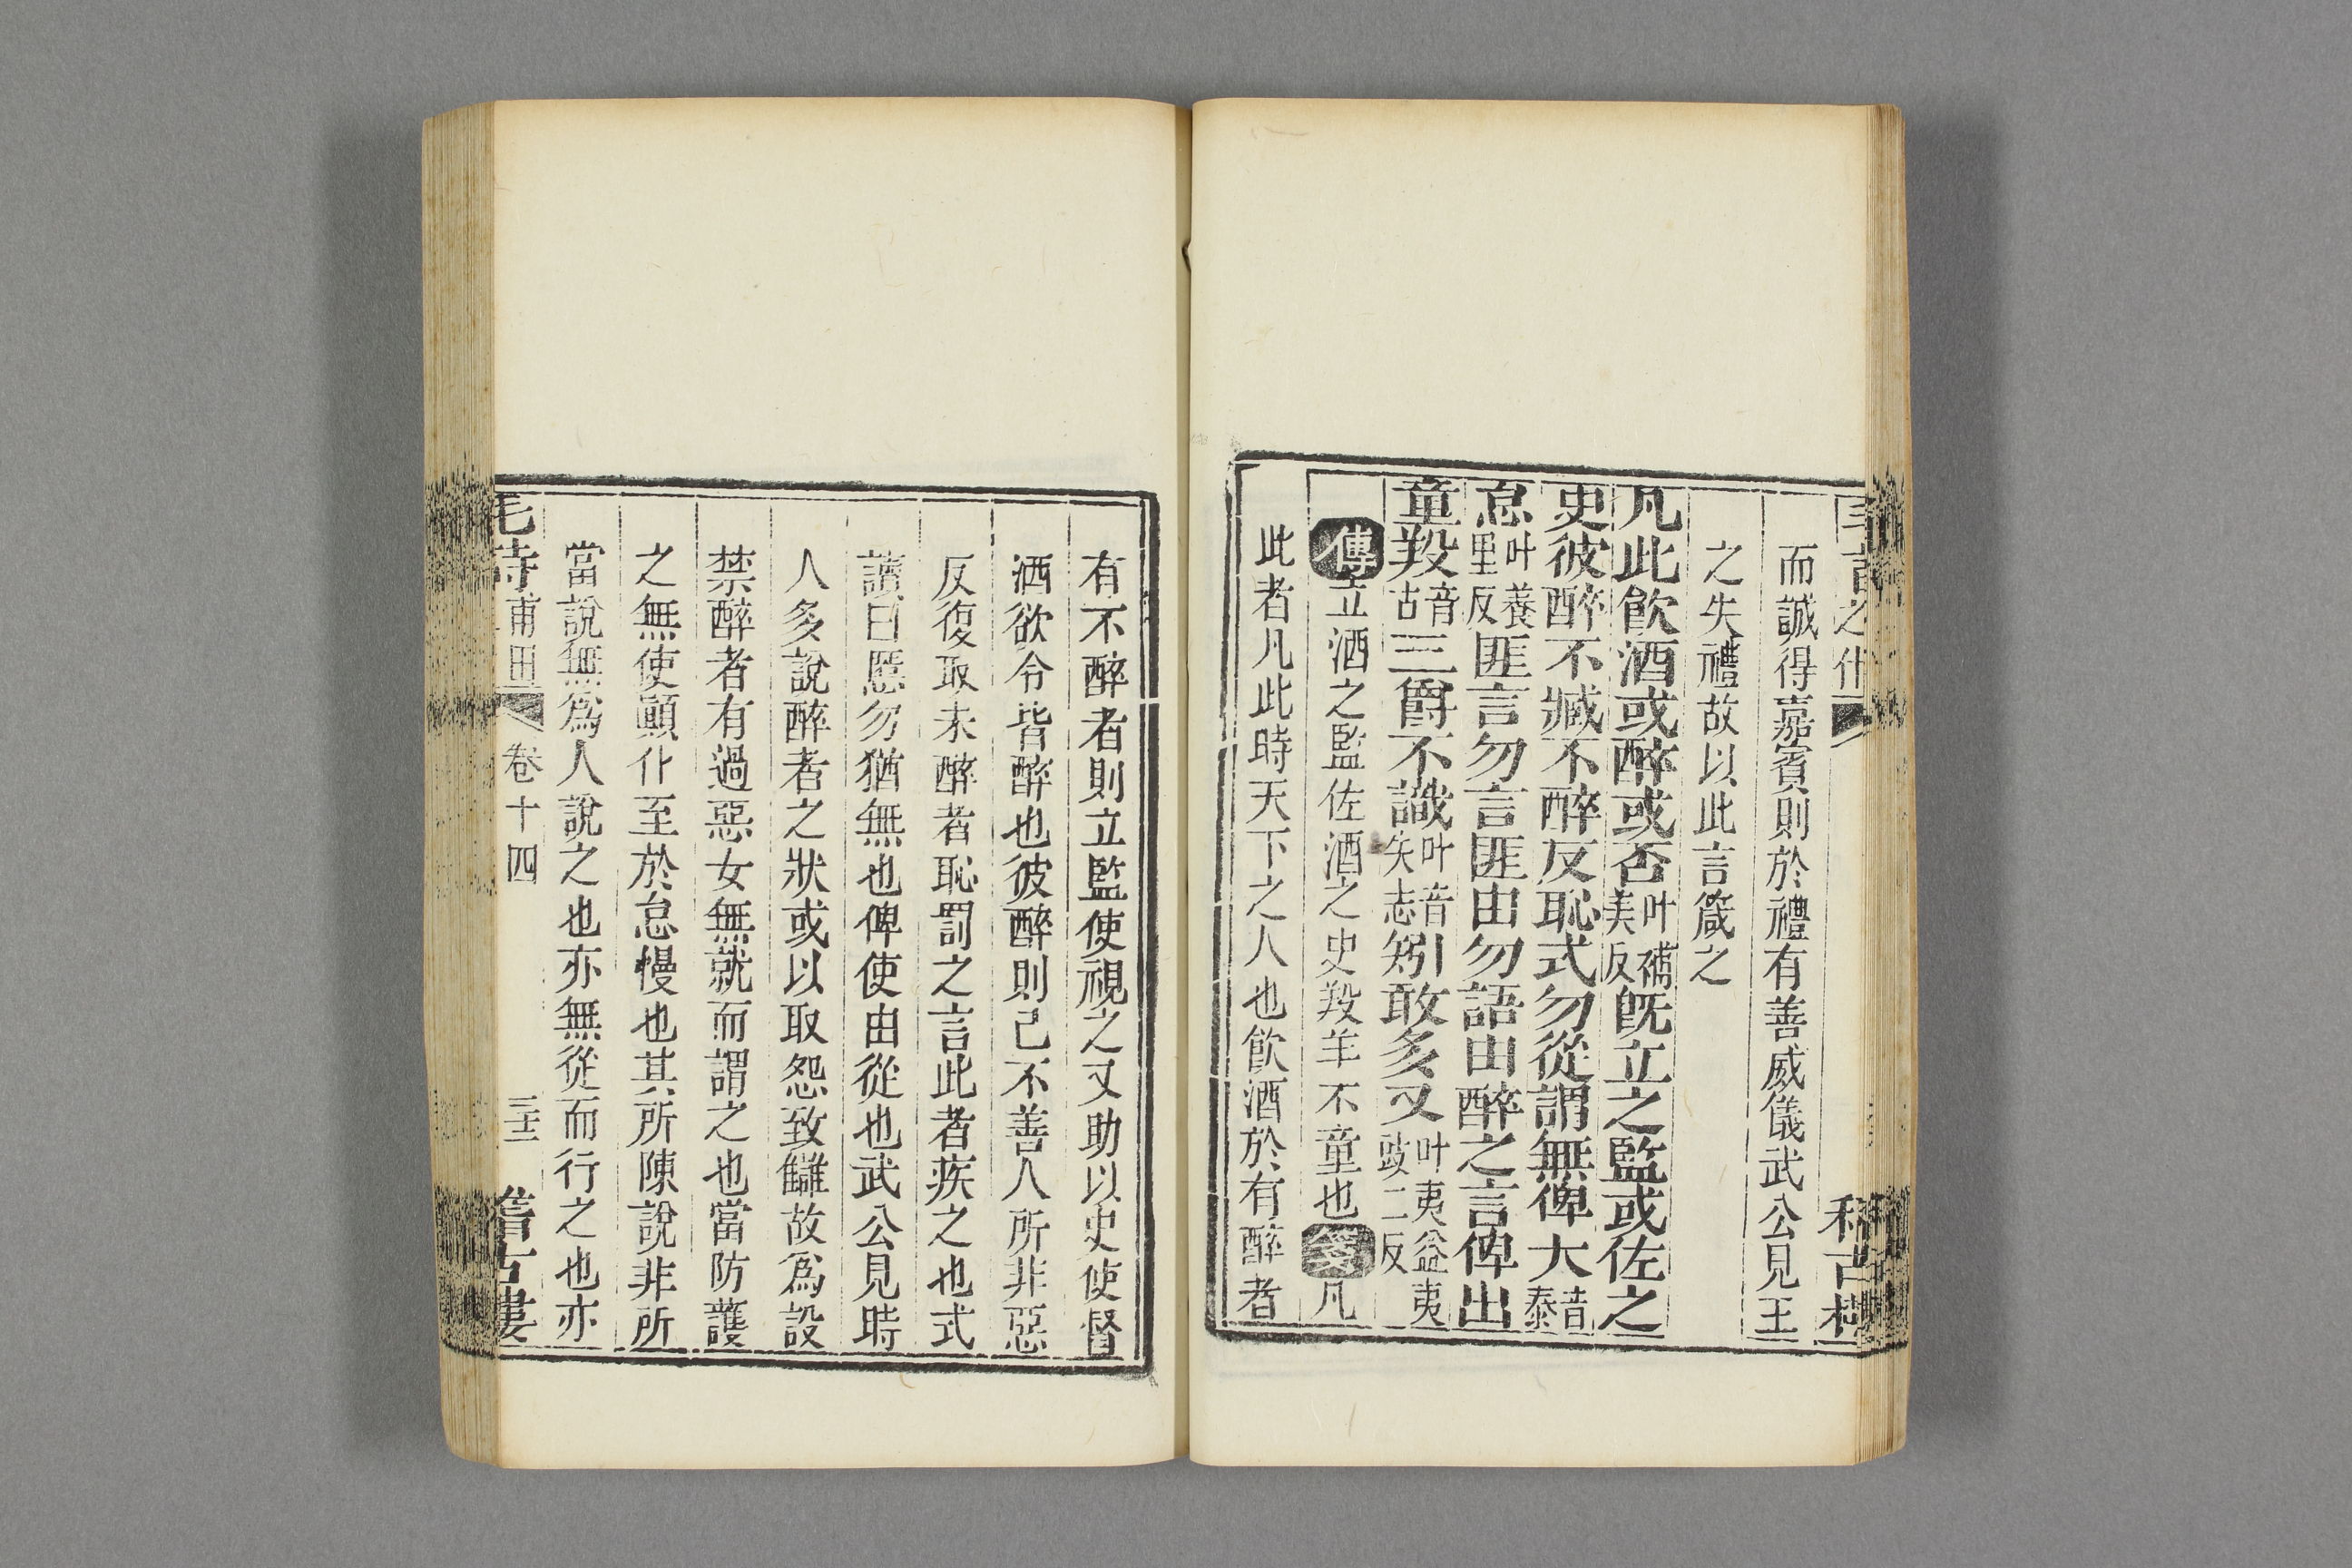 而誠得嘉賓則於禮有善威儀武公見王
之失禮故以此言箴之
凡此飲酒或醉或否叶補美反旣立之監或佐之
史彼醉不臧不醉反恥式勿從謂無俾大音泰
怠叶養里反匪言勿言匪由勿語由醉之言俾出
童羖音古三爵不識叶音失志矧敢多又叶夷益夷豉二反
傳立酒之監佐酒之史羖羊不童也箋凡
此者凡此時天下之人也飲酒於有醉者
有不醉者則立監使視之又助以史使督
酒欲令皆醉也彼醉則己不善人所非惡
反復取未醉者恥罰之言此者疾之也式
讀曰慝勿猶無也俾使由從也武公見時
人多說醉者之狀或以取怨致讎故爲設
禁醉者有過惡女無就而謂之也當防護
之無使顚仆至於怠慢也其所陳說非所
當說無爲人說之也亦無從而行之也亦
毛詩 甫田 卷十四 三十三 稽古樓